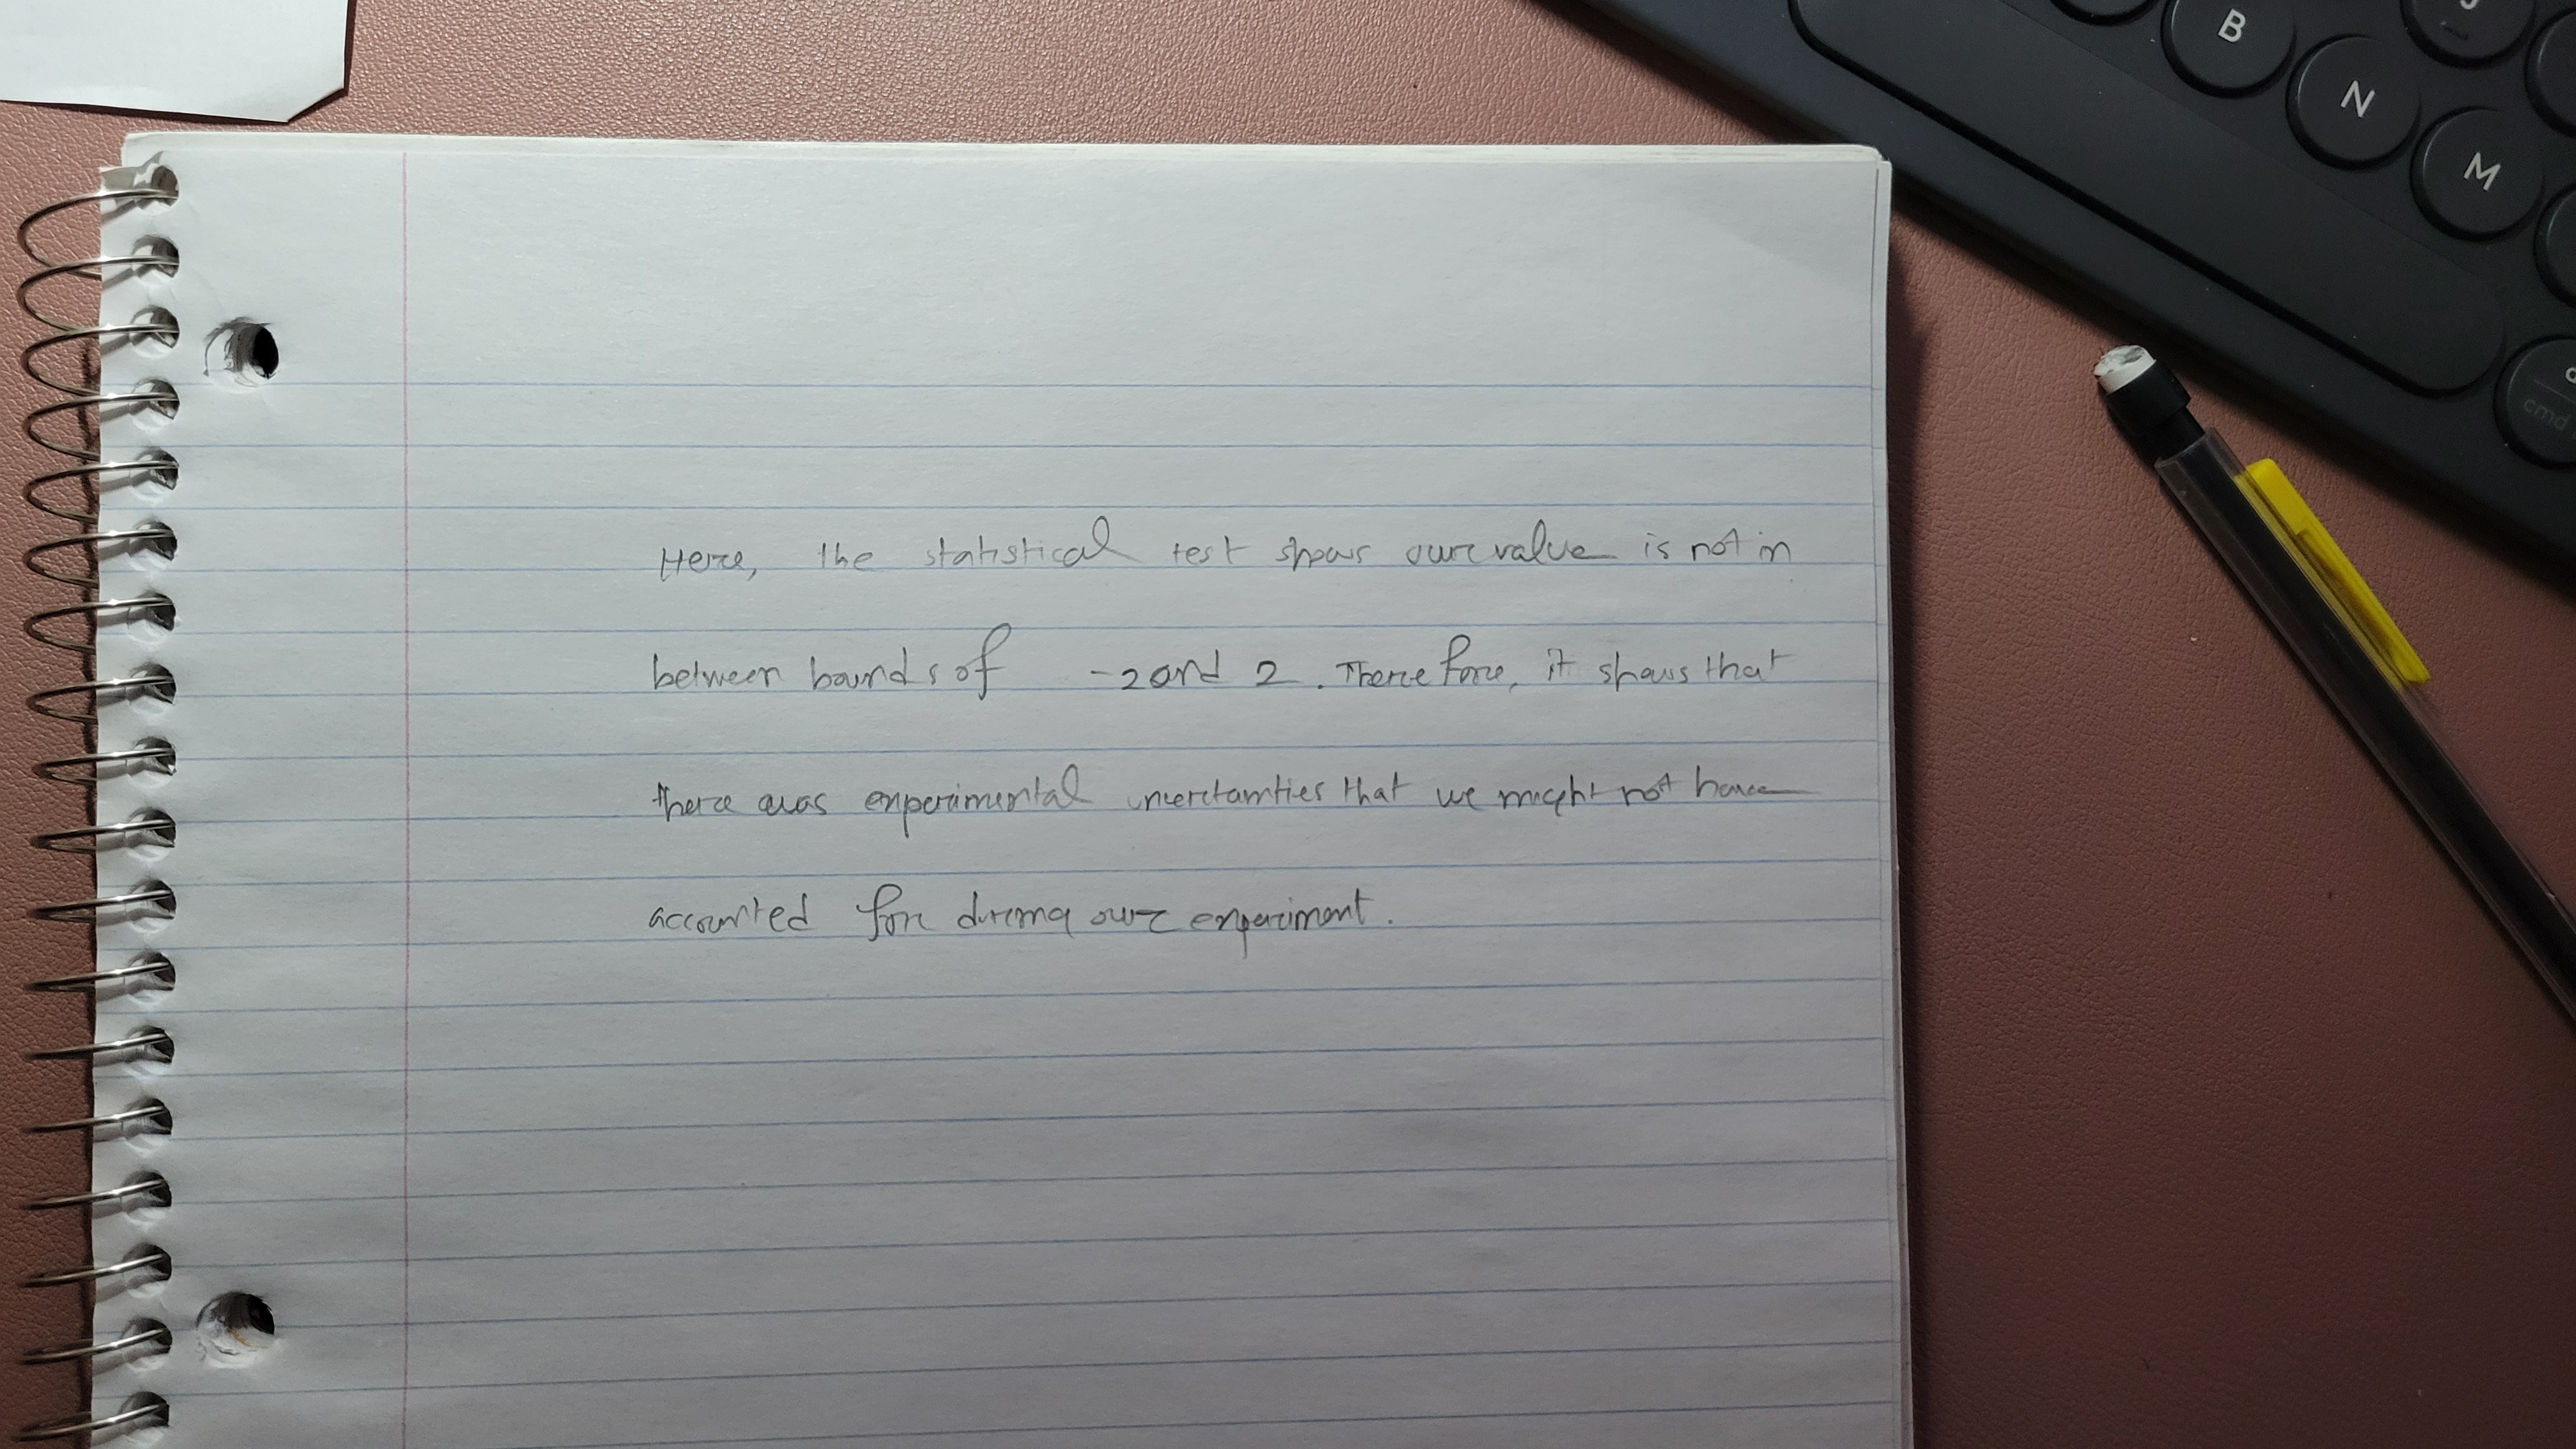 B
N
M
cmd
Here, the statistical test shows our value is not in
between bounds of -2 and 2. Therefore, it shows that
there was experimental uncertainties that we might not have
accounted for during our experiment.